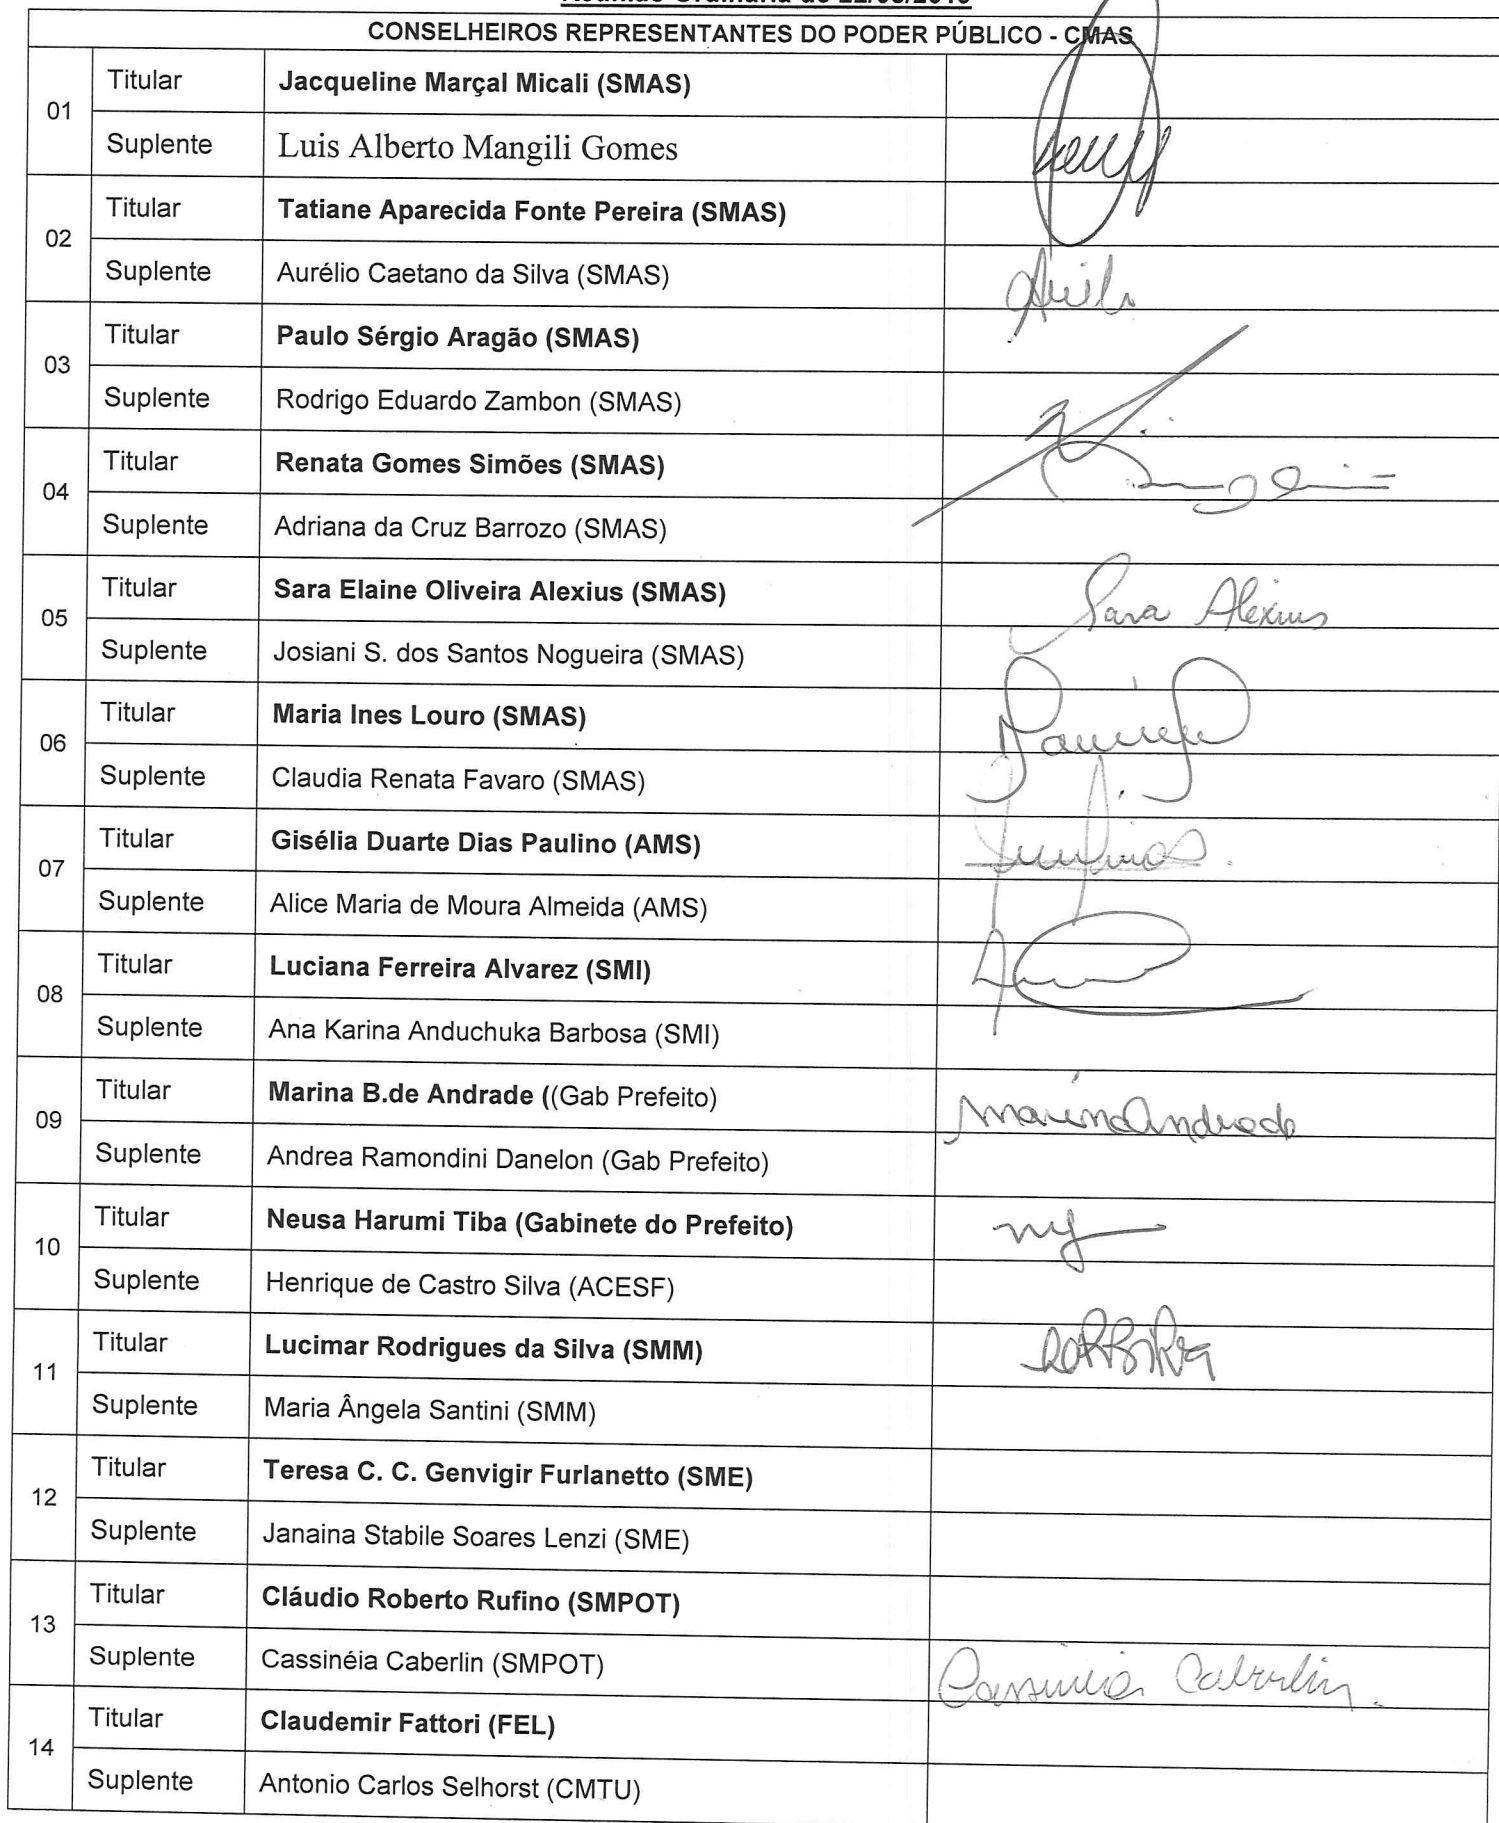 CONSELHEIROS REPRESENTANTES DO PODER PÚBLICO - CMAS
01
Titular Jacqueline Marçal Micali (SMAS)
Suplente Luis Alberto Mangili Gomes
02
Titular Tatiane Aparecida Fonte Pereira (SMAS)
Suplente Aurélio Caetano da Silva (SMAS)
03
Titular Paulo Sérgio Aragão (SMAS)
Suplente Rodrigo Eduardo Zambon (SMAS)
04
Titular Renata Gomes Simões (SMAS)
Suplente Adriana da Cruz Barrozo (SMAS)
05
Titular Sara Elaine Oliveira Alexius (SMAS) Sara Alexius
Suplente Josiani S. dos Santos Nogueira (SMAS)
06
Titular Maria Ines Louro (SMAS)
Suplente Claudia Renata Favaro (SMAS)
07
Titular Gisélia Duarte Dias Paulino (AMS)
Suplente Alice Maria de Moura Almeida (AMS)
08
Titular Luciana Ferreira Alvarez (SMI)
Suplente Ana Karina Anduchuka Barbosa (SMI)
09
Titular Marina B.de Andrade ((Gab Prefeito) Marina Andrade
Suplente Andrea Ramondini Danelon (Gab Prefeito)
10
Titular Neusa Harumi Tiba (Gabinete do Prefeito)
Suplente Henrique de Castro Silva (ACESF)
11
Titular Lucimar Rodrigues da Silva (SMM)
Suplente Maria Ângela Santini (SMM)
12
Titular Teresa C. C. Genvigir Furlanetto (SME)
Suplente Janaina Stabile Soares Lenzi (SME)
13
Titular Cláudio Roberto Rufino (SMPOT)
Suplente Cassinéia Caberlin (SMPOT) Cassinéia Caberlin.
14
Titular Claudemir Fattori (FEL)
Suplente Antonio Carlos Selhorst (CMTU)